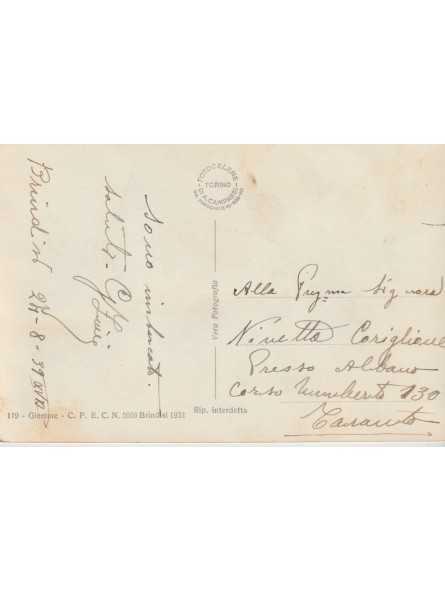 Brindisi 27-8-39 XVII
Sono imbarcato.
saluto
FOTOCELERE
TORINO
DI A. CAMPASSI
Vera Fotografia
Alla Preg.ma Signora
Ninetta Coriglione
Presso Albano
Corso Umberto 130
Taranto
119 - Giemme - C. P. E. C. N. 5059 Brindisi 1931
Rip. interdetta